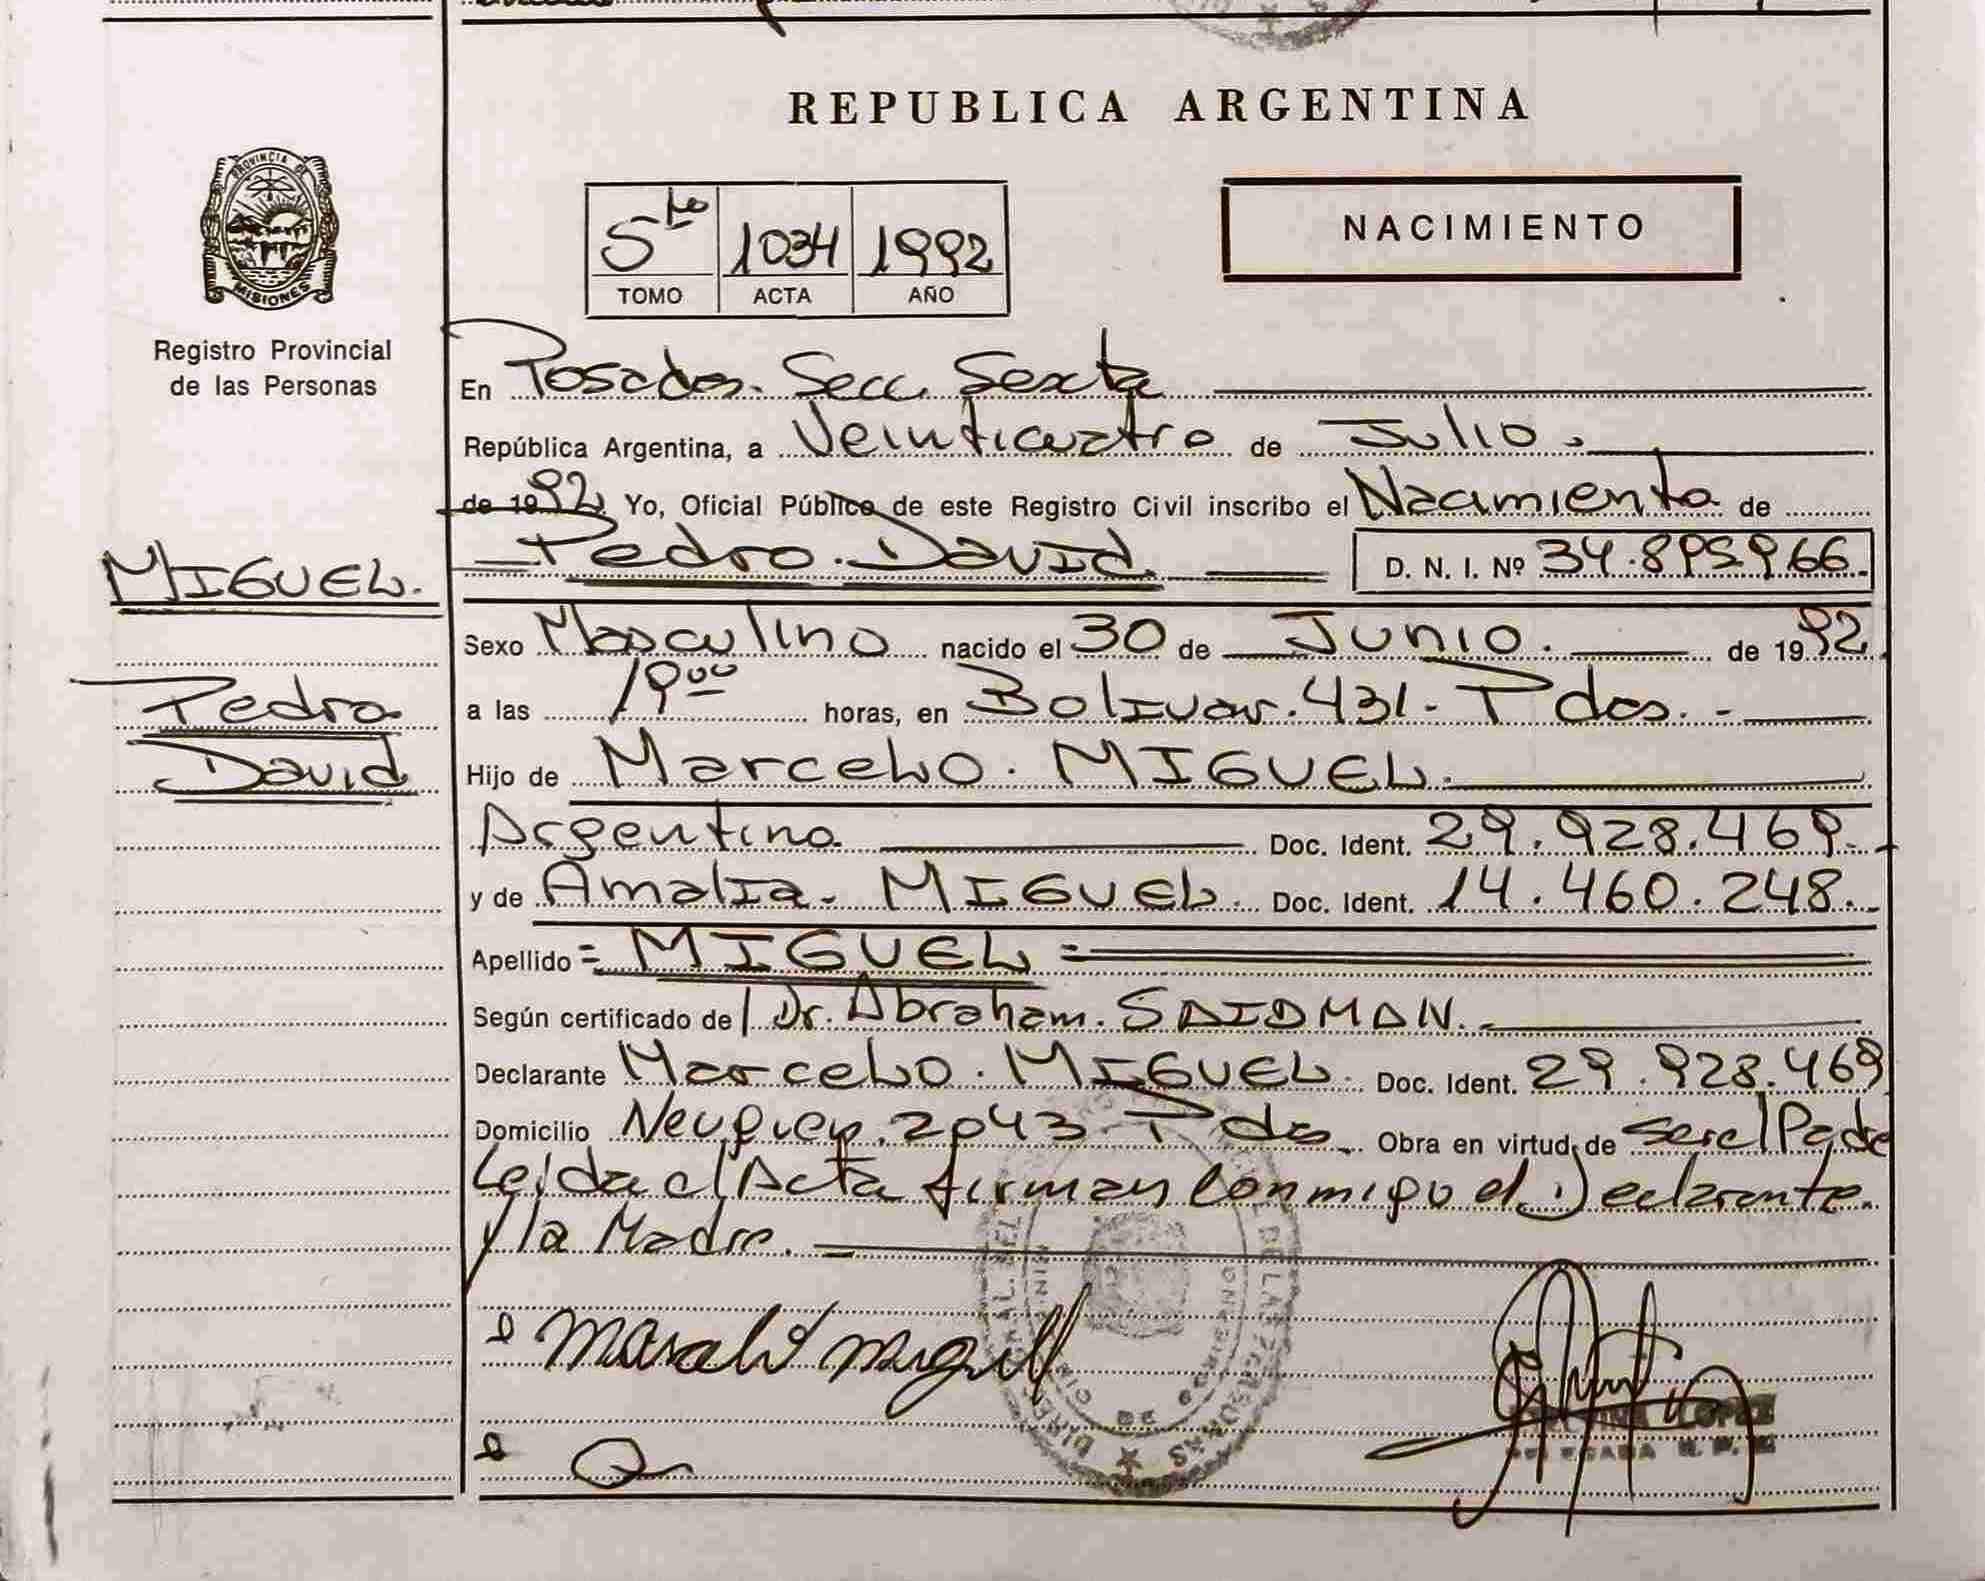 REPUBLICA ARGENTINA
PROVINCIA DE
MISIONES
Registro Provincial
de las Personas
5to 1034 1992
TOMO ACTA AÑO
NACIMIENTO
En Posadas. Secc. Sexta
República Argentina, a Veinticuatro de Julio.
de 1992 Yo, Oficial Público de este Registro Civil inscribo el Nacimiento de
MIGUEL.
Pedro. David D. N. I. Nº 34.895.966.
Sexo Masculino nacido el 30 de Junio. de 1992
Pedro
a las 19.00 horas, en Bolivar. 431. Pdas.
David
Hijo de Marcelo. MIGUEL.
Argentino Doc. Ident. 29.928.469.
y de Amalia. MIGUEL. Doc. Ident. 14.460.248.
Apellido = MIGUEL =
Según certificado de / Dr. Abraham. SAIDMAN.
Declarante Marcelo. MIGUEL. Doc. Ident. 29.928.469
Domicilio Neuquen. 2043 Pdas Obra en virtud de ser el Padre
Leida el Acta firman Conmigo el Declarante
y la Madre.
Marcelo Miguel
LOPEZ